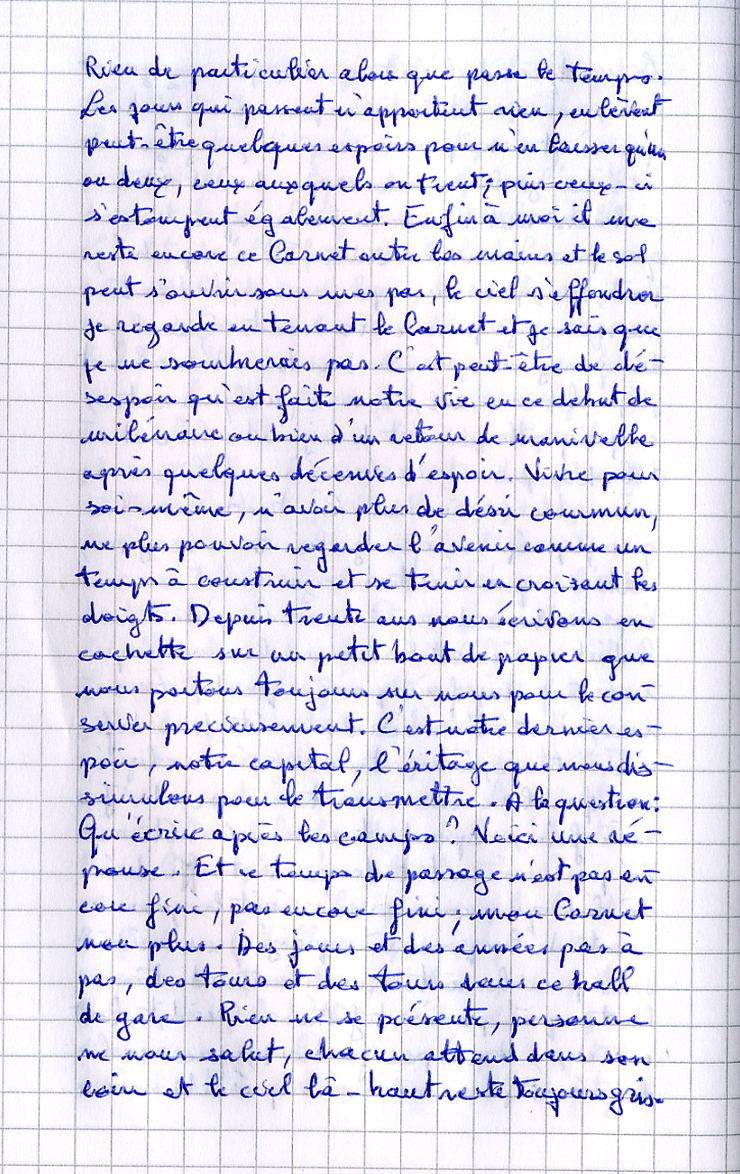 Rien de particulier alors que passe le temps.
Les jours qui passent n'apportent rien, enlèvent
peut-être quelques espoirs pour n'en laisser qu'un
ou deux, ceux auxquels on tient; puis ceux-ci
s'estompent également. Enfin à moi il me
reste encore ce Carnet entre les mains et le sol
peut s'ouvrir sous mes pas, le ciel s'effondrer
je regarde en tenant le Carnet et je sais que
je ne sombrerais pas. C'est peut-être de dé-
sespoir qu'est faite notre vie en ce debut de
millénaire ou bien d'un retour de manivelle
après quelques décennies d'espoir. Vivre pour
soi-même, n'avoir plus de désir commun,
ne plus pouvoir regarder l'avenir comme un
temps à construire et se tenir en croisant les
doigts. Depuis trente ans nous écrivons en
cachette sur un petit bout de papier que
nous portons toujours sur nous pour le con-
server precieusement. C'est notre dernier es-
poir, notre capital, l'éritage que nous dis-
simulons pour le transmettre. A la question:
Qu'écrire après les camps? Voici une ré-
ponse. Et ce temps de passage n'est pas en-
core fini, pas encore fini; mon Carnet
non plus. Des jours et des années pas à
pas, des tours et des tours dans ce hall
de gare. Rien ne se présente, personne
ne nous salut, chacun attend dans son
coin et le ciel là-haut reste toujours gris.